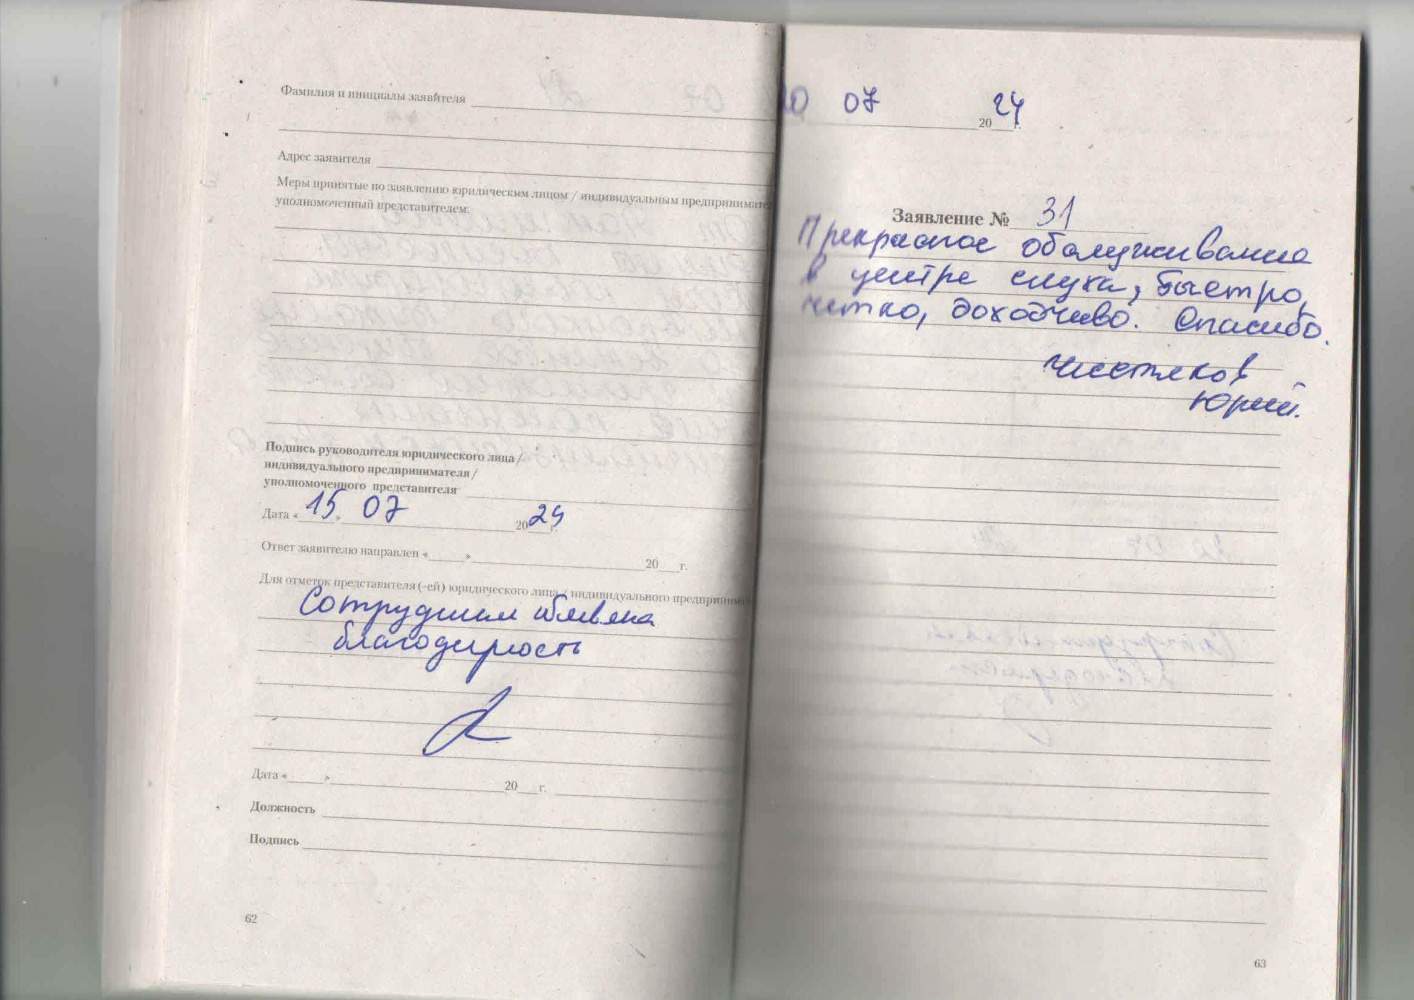 Фамилия и инициалы заявителя
Адрес заявителя
Меры принятые по заявлению юридическим лицом / индивидуальным
уполномоченный представителем:
Подпись руководителя юридического лица /
индивидуального предпринимателя /
уполномоченного представителя
Дата « 15 » 07 2024 г.
Ответ заявителю направлен « » 20 г.
Для отметок представителя (-ей) юридического лица / индивидуального
Сотрудникам объявлена
благодарность
Дата « » 20 г.
Должность
Подпись
62
07 2024 г.
Заявление № 31
Прекрасное обслуживание
в центре слуха, быстро,
четко, доходчиво. Спасибо.
Чистяков
Юрий.
63